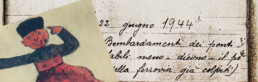 22. giugno 1944
Bombardamenti dei ponti
labili meno - dicono - il po
della ferrovia già colpiti)